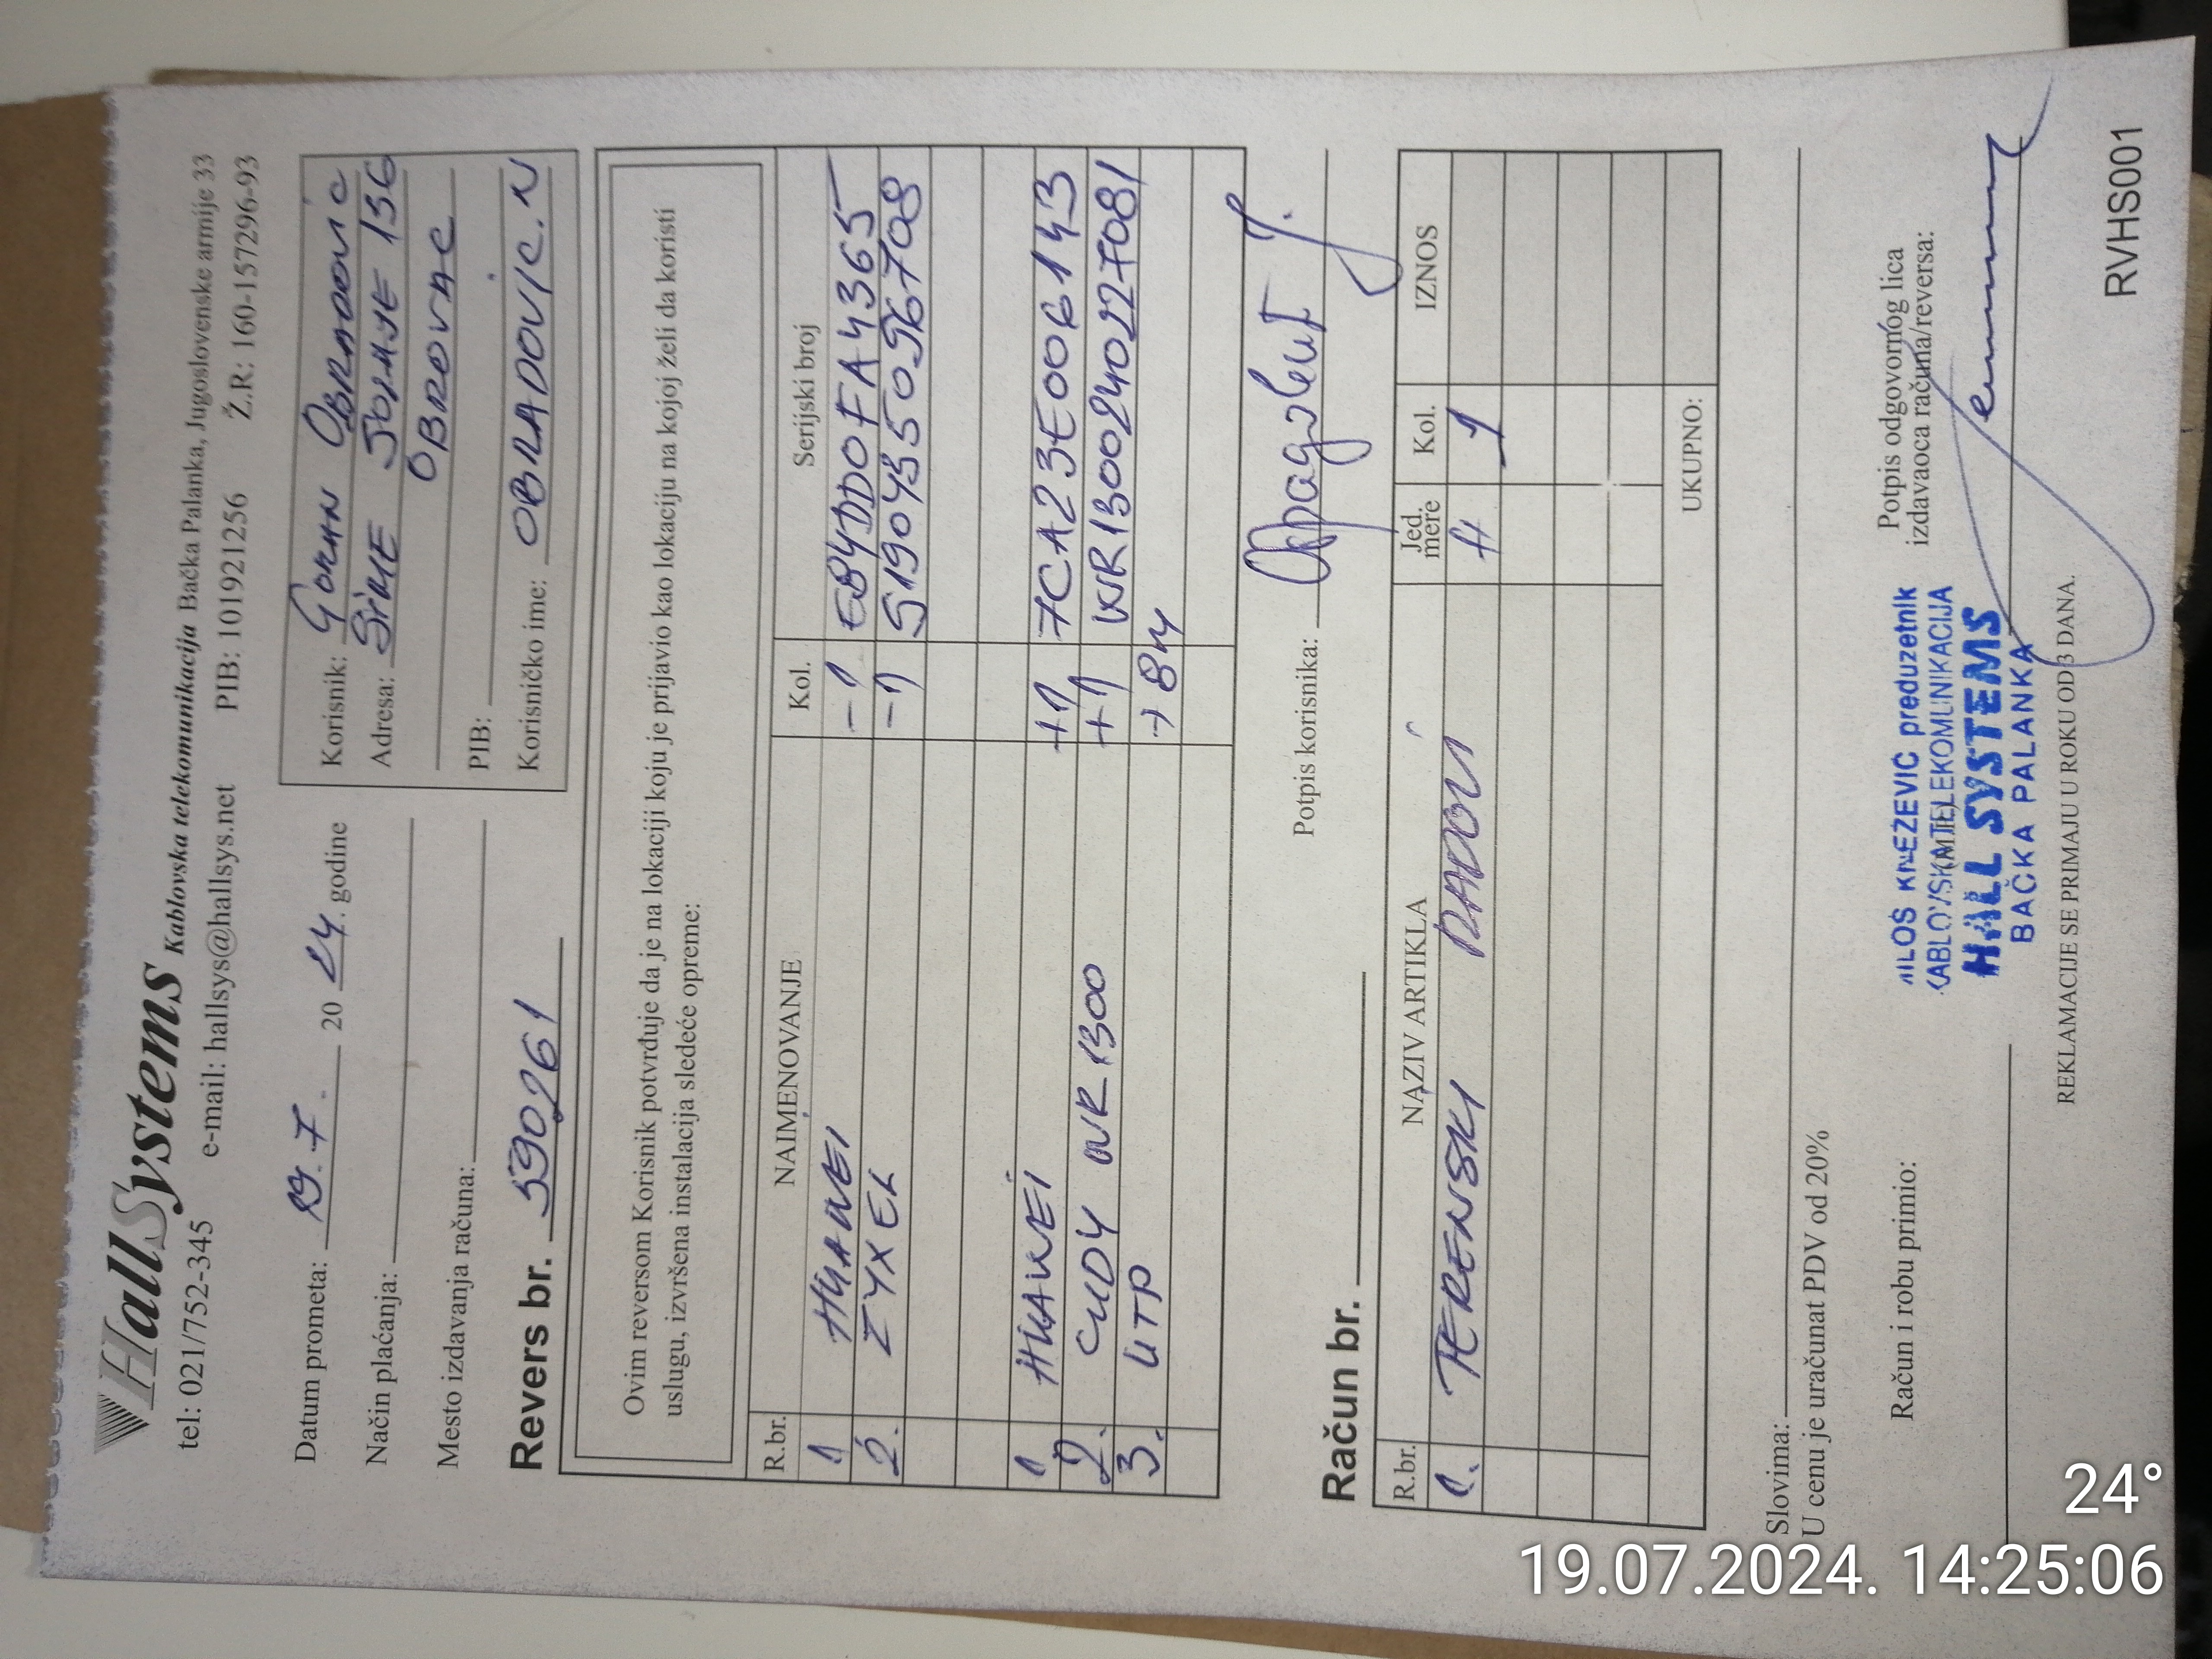 HallSystems Kablovska telekomunikacija Bačka Palanka, Jugoslovenske armije 33
tel: 021/752-345 e-mail: hallsys@hallsys.net PIB: 101921256 Ž.R: 160-157296-93
Datum prometa: 19.7. 20 24. godine
Način plaćanja:
Mesto izdavanja računa:
Revers br. 590261
Korisnik: GORAN OBRADOVIC
Adresa: SIME ŠOLAJE 136
OBROVAC
PIB:
Korisničko ime: OBRADOVIC.N
Ovim reversom Korisnik potvrđuje da je na lokaciji koju je prijavio kao lokaciju na kojoj želi da koristi
uslugu, izvršena instalacija sledeće opreme:
R.br. NAIMENOVANJE Kol. Serijski broj
1 HUAWEI -1 E84DD0FA4365
2. ZYXEL -1 S190Y550596708
1 HUAWEI +1 7CA23E006143
2. CUDY WR1300 +1 WR1300240227081
3. UTP +8m
Potpis korisnika:
Račun br.
R.br. NAZIV ARTIKLA Jed. mere Kol. IZNOS
1. TERENSKI RADOVI h 1
UKUPNO:
Slovima:
U cenu je uračunat PDV od 20%
Račun i robu primio:
MILOŠ KNEZEVIC preduzetnik
KABLOVSKA TELEKOMUNIKACIJA
HALL SYSTEMS
BAČKA PALANKA
Potpis odgovornog lica
izdavaoca računa/reversa:
REKLAMACIJE SE PRIMAJU U ROKU OD 3 DANA.
RVHS001
24°
19.07.2024. 14:25:06